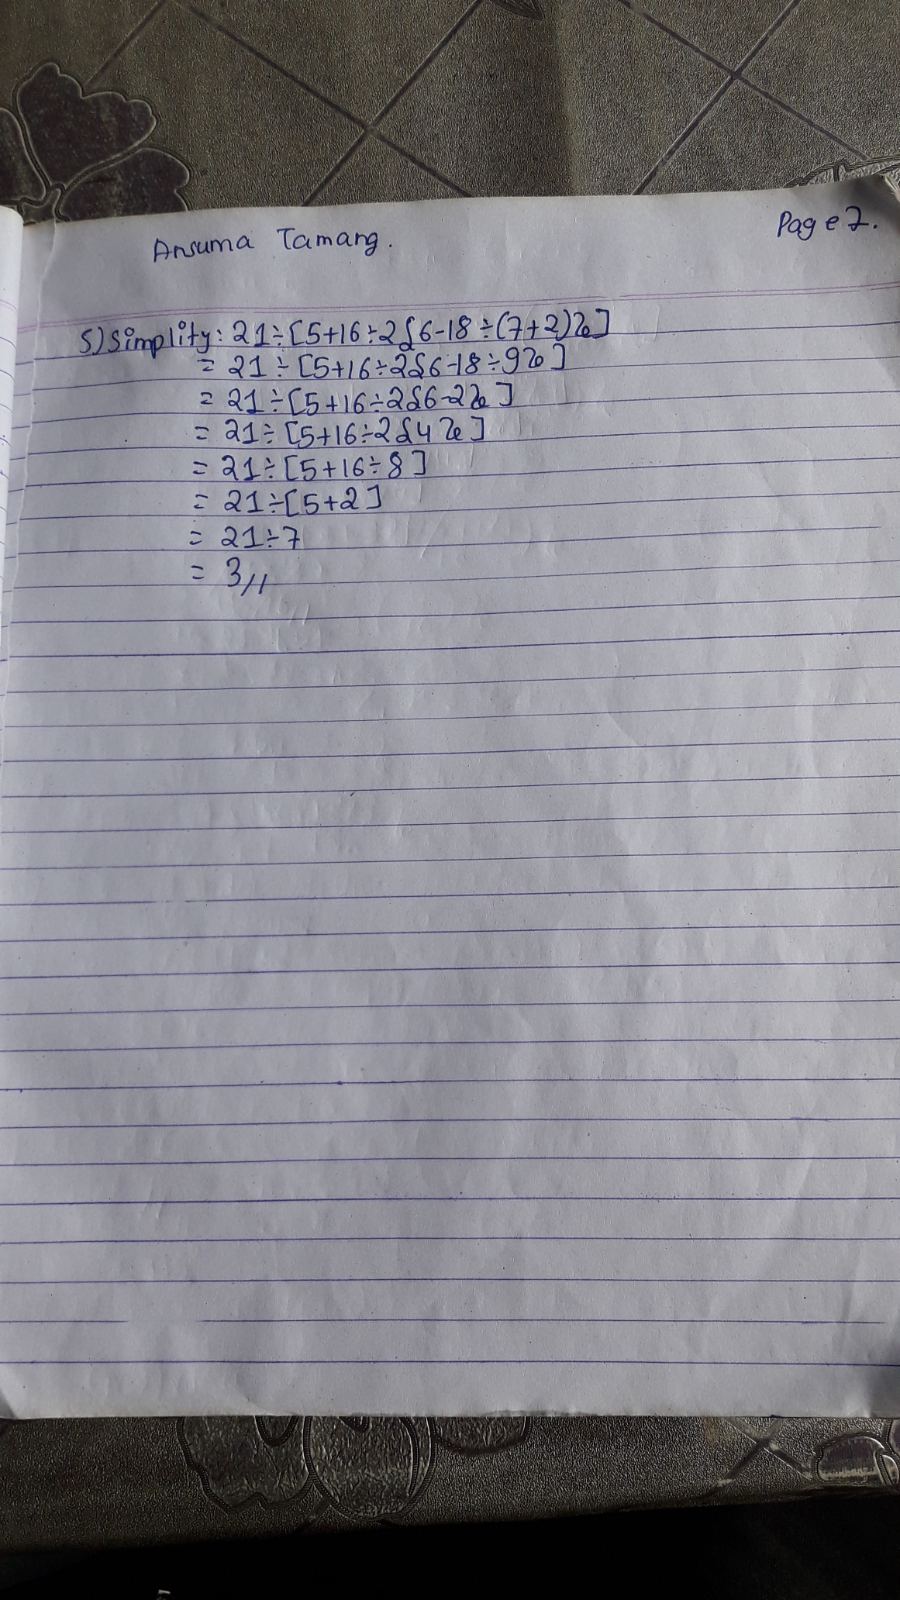 Ansuma Tamang.
Page 7.
5) Simplity: 21÷[5+16÷2{6-18÷(7+2)}]
= 21÷[5+16÷2{6-18÷9}]
= 21÷[5+16÷2{6-2}]
= 21÷[5+16÷2{4}]
= 21÷[5+16÷8]
= 21÷[5+2]
= 21÷7
= 3//